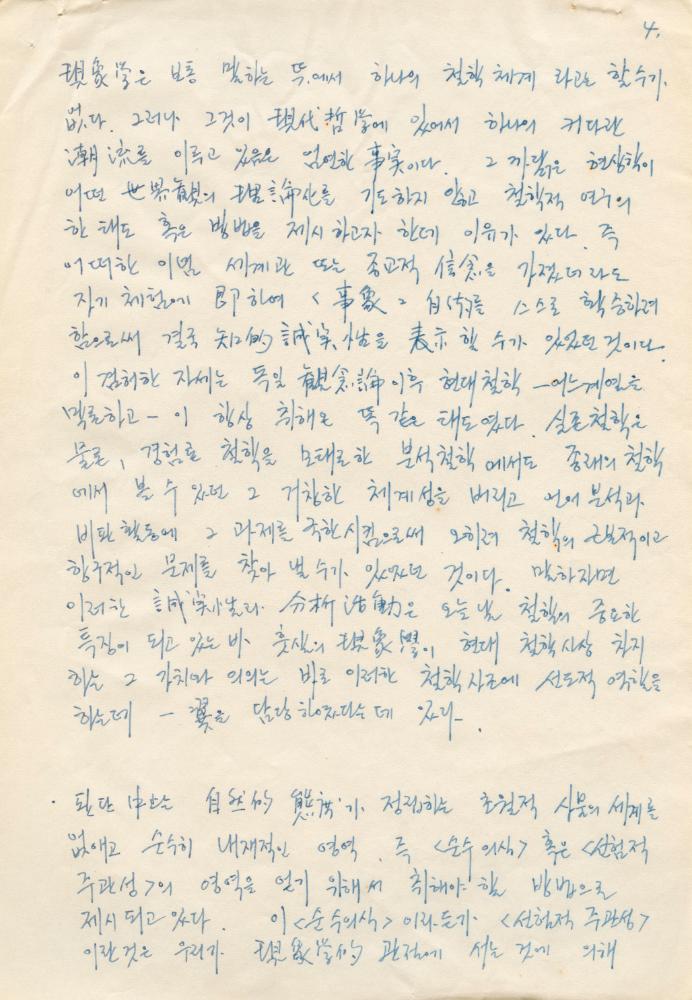 4.
現象学은 보통 말하는 뜻에서 하나의 철학 체계 라고는 할 수가
없다. 그러나 그것이 現代 哲学에 있어서 하나의 커다란
潮流를 이루고 있음은 엄연한 事実이다. 그 까닭은 현상학이
어떤 世界観의 理論化를 기도하지 않고 철학적 연구의
한 태도 혹은 방법을 제시하고자 한데 이유가 있다. 즉
어떠한 이념 세계관 또는 종교적 信念을 가졌더라도
자기 체험에 即하여 <事象 그 自体>를 스스로 확증하려
함으로써 결국 知的 誠実性을 表示할 수가 있었던 것이다.
이 겸허한 자세는 독일 観念論 이후 현대철학 －어느계열을
막론하고－ 이 항상 취해온 똑같은 태도였다. 실존철학은
물론, 경험론 철학을 모태로한 분석철학에서도 종래의 철학
에서 볼 수 있던 그 거창한 체계성을 버리고 언어분석과
비판활동에 그 과제를 국한시킴으로써 오히려 철학의 근본적이고
항구적인 문제를 찾아 낼 수가 있었던 것이다. 말하자면
이러한 誠実性과 分析活動은 오늘날 철학의 중요한
특징이 되고 있는 바, 훗설의 現象學이 현대 철학사상 차지
하는 그 가치와 의의는 바로 이러한 철학사조에 선도적 역할을
하는데 一翼을 담당하였다는데 있다.
판단中止는 自然的 態度가 정립하는 초월적 사물의 세계를
없애고 순수히 내재적인 영역, 즉 <순수의식> 혹은 <선험적
주관성>의 영역을 얻기 위해서 취해야 할 방법으로
제시되고 있다. 이 <순수의식> 이라든가 <선험적 주관성>
이란것은 우리가 現象学的 관점에 서는 것에 의해